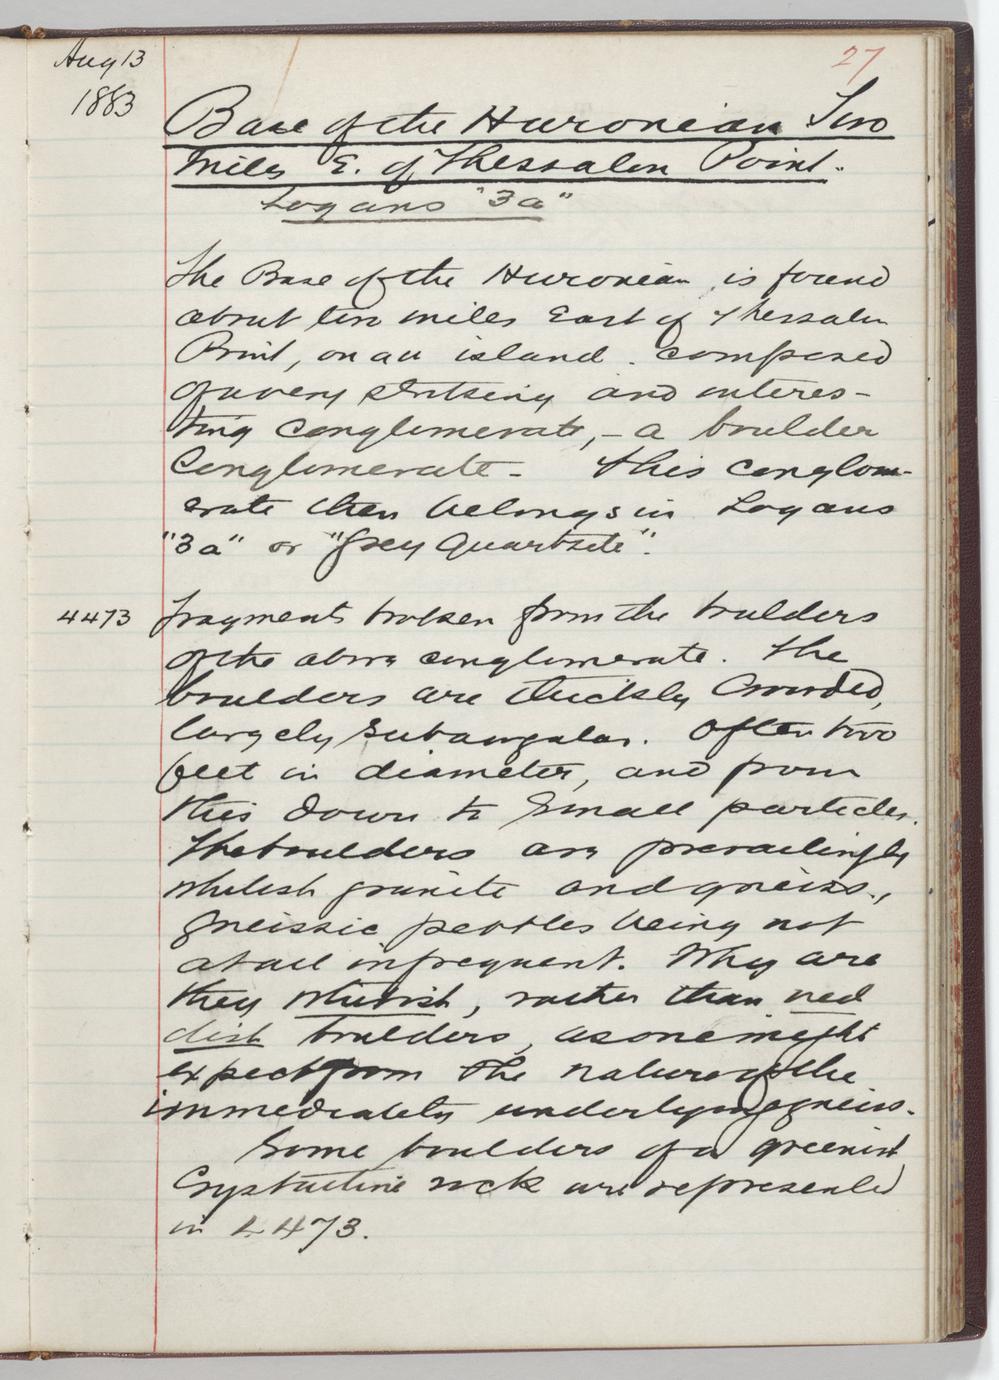 Aug 13
1883
27
Base of the Huronian Two
Miles E. of Thessalon Point.
Logans "3a"
The Base of the Huronian is found
about two miles East of Thessalon
Point, on an island. composed
of a very striking and interes-
ting conglomerate, - a boulder
Conglomerate - This conglom-
erate then belongs in Logans
"3a" or "Grey Quartzite".
4473 Fragments broken from the boulders
of the above conglomerate. The
boulders are thickly crowded,
largely subangular. Often two
feet in diameter, and from
this down to small particles.
The boulders are prevailingly
whitish granite and gneiss.,
gneissic pebbles being not
at all infrequent. Why are
they whitish, rather than red
dish boulders, as one might
expect from the nature of the
immediately underlying gneiss.
Some boulders of a greenish
Crystalline rock are represented
in 4473.